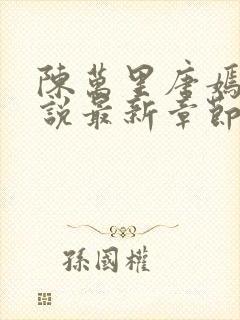 陳萬里唐嫣
說最新章節
孫國權